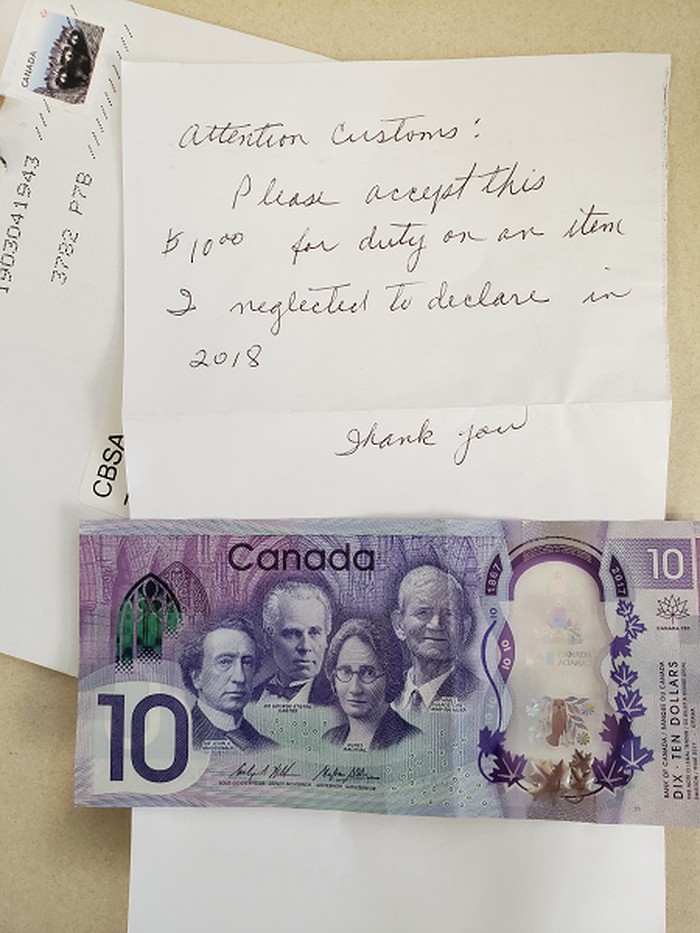 CANADA
1903041943
3782 P7B
CBSA
Attention Customs:
Please accept this
$10.00 for duty on an item
I neglected to declare in
2018
Thank you
Canada
10
1867
2017
10
CANADA 150
SIR GEORGE-ÉTIENNE
CARTIER
BANK OF CANADA / BANQUE DU CANADA
DIX · TEN DOLLARS